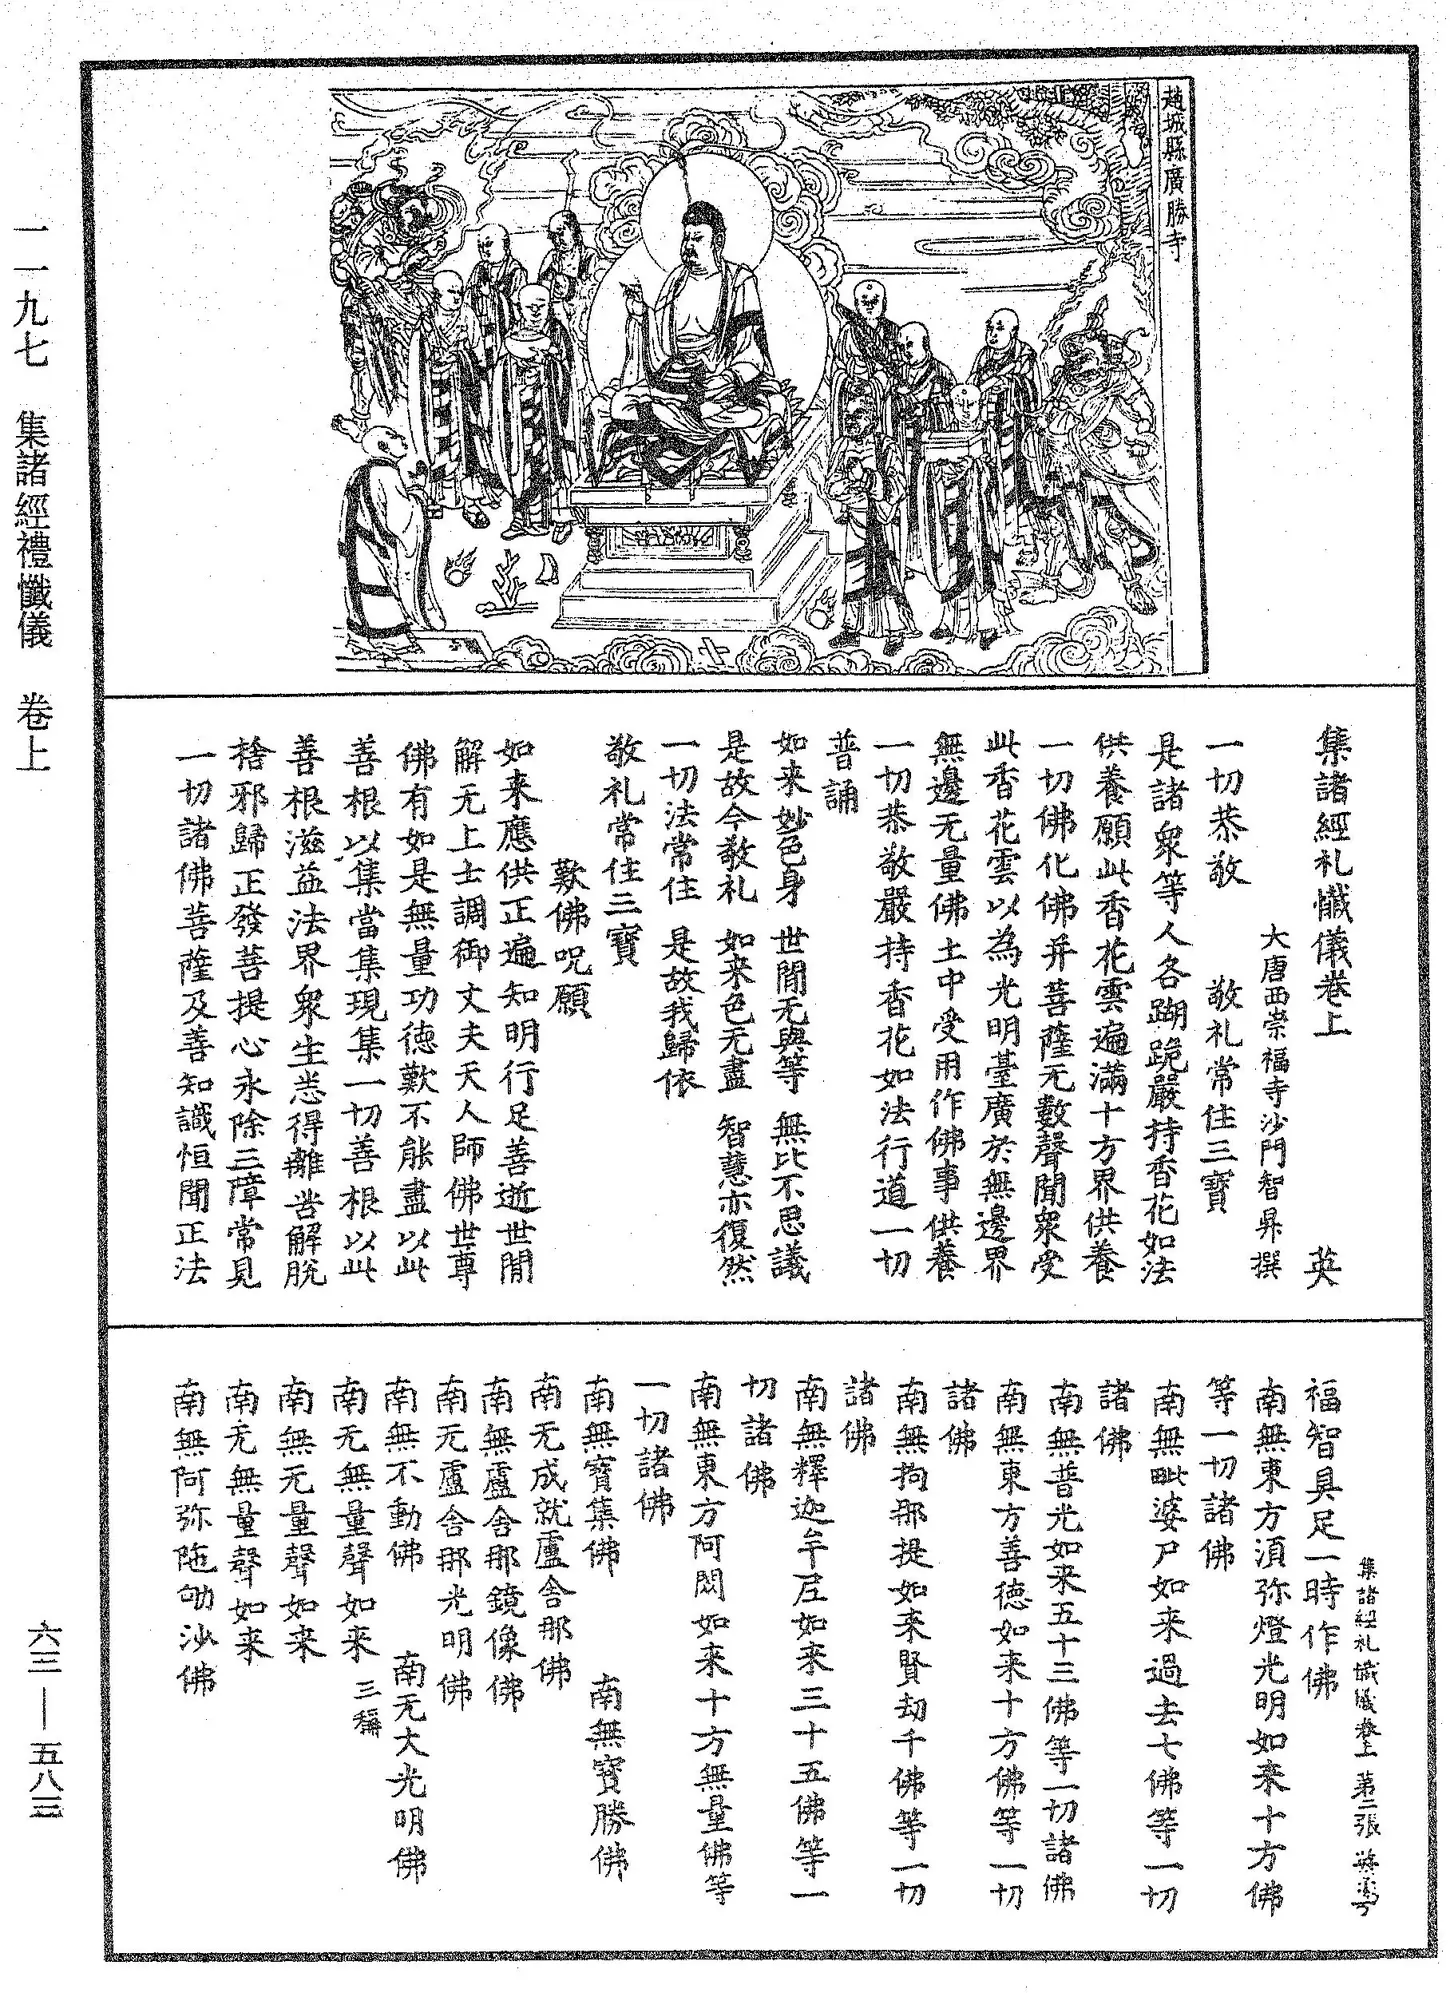 一一九七 集諸經禮懺儀 卷上
六三—五八三
趙城縣廣勝寺
集諸經礼懺儀卷上 英
大唐西崇福寺沙門智昇撰
一切恭敬 敬礼常住三寶
是諸衆等人各䠒跪嚴持香花如法
供養願此香花雲遍滿十方界供養
一切佛化佛幷菩薩无數聲聞衆受
此香花雲以為光明臺廣於無邊界
無邊无量佛土中受用作佛事供養
一切恭敬嚴持香花如法行道一切
普誦
如来妙色身 世間无與等 無比不思議
是故今敬礼 如来色无盡 智慧亦復然
一切法常住 是故我歸依
敬礼常住三寶
歎佛呪願
如来應供正遍知明行足善逝世間
解无上士調御丈夫天人師佛世尊
佛有如是無量功德歎不能盡以此
善根以集當集現集一切善根以此
善根滋益法界衆生悉得離苦解脫
捨邪歸正發菩提心永除三障常見
一切諸佛菩薩及善知識恒聞正法
集諸經礼懺儀卷上 第二張 英字号
福智具足一時作佛
南無東方湏弥燈光明如来十方佛
等一切諸佛
南無毗婆尸如来過去七佛等一切
諸佛
南無普光如来五十三佛等一切諸佛
南無東方善德如来十方佛等一切
諸佛
南無拘那提如来賢劫千佛等一切
諸佛
南無釋迦牟尼如来三十五佛等一
切諸佛
南無東方阿閦如来十方無量佛等
一切諸佛
南無寶集佛 南無寳勝佛
南无成就盧舍那佛
南無盧舍那鏡像佛
南无盧舍那光明佛
南無不動佛 南无大光明佛
南无無量聲如来 三稱
南無无量聲如来
南无無量聲如来
南無阿弥陁劬沙佛